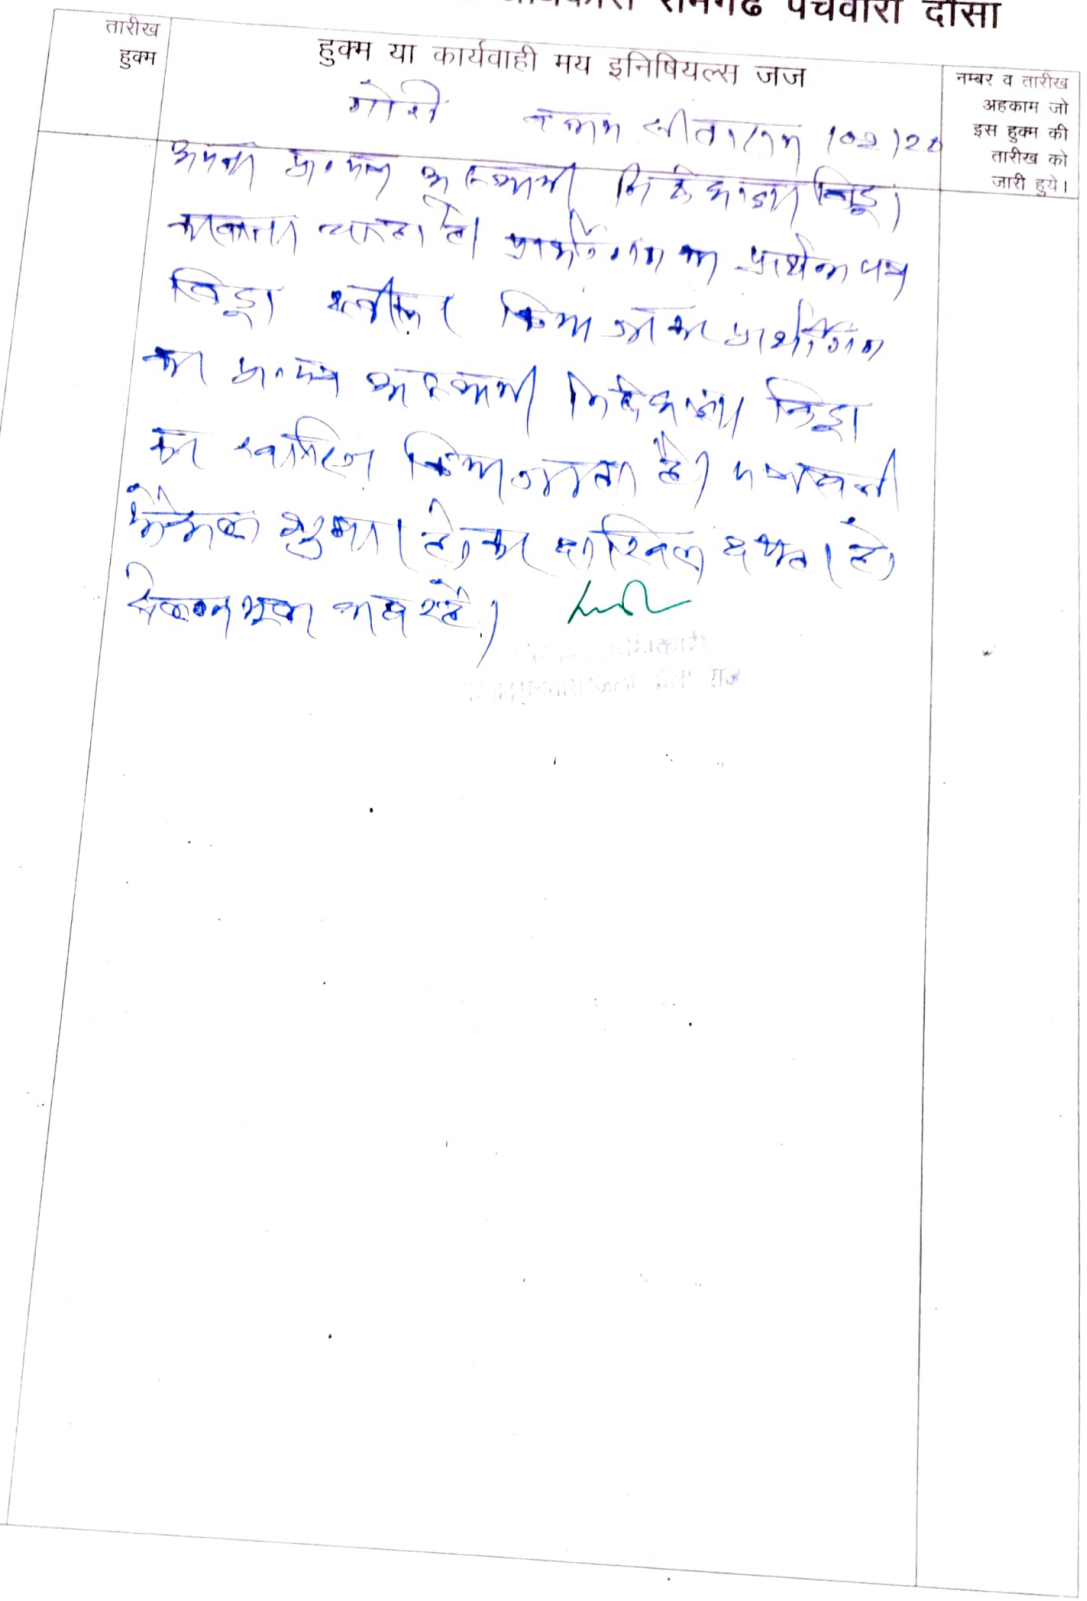 रामगढ पचवारा दौसा
तारीख
हुक्म
हुक्म या कार्यवाही मय इनिषियल्स जज
नम्बर व तारीख
अहकाम जो
इस हुक्म की
तारीख को
जारी हुये।
बनाम सीताराम 102/20
अपना प्रा॰पत्र अस्थायी निषेधाज्ञा विड्रा
करवाना चाहता है। प्रार्थीगण का प्रार्थना पत्र
विड्रा स्वीकार किया जाकर प्रार्थीगण
का प्रा॰पत्र अस्थायी निषेधाज्ञा विड्रा
कर खारिज किया जाता है। पत्रावली
फैसल शुमार होकर दाखिल दफ्तर हो